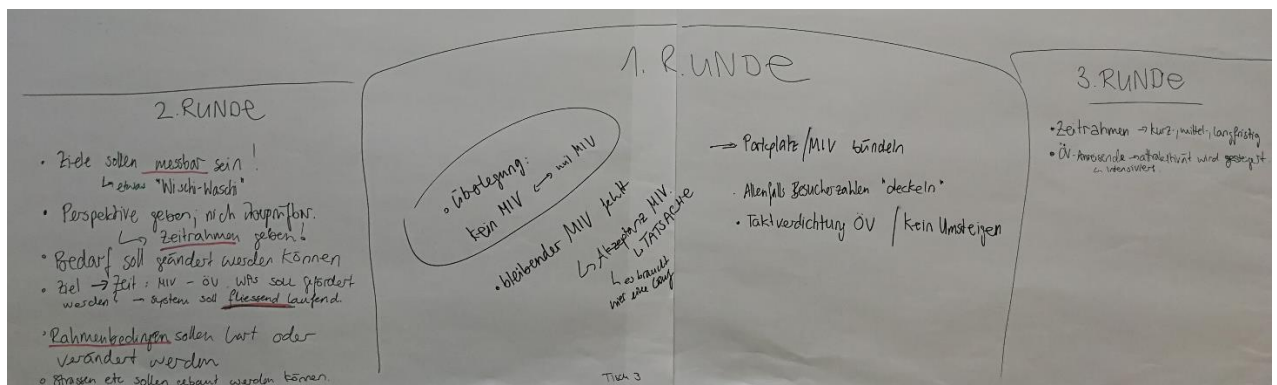 2. RUNDE
• Ziele sollen messbar sein!
↳ etwas "Wischi-Waschi"
• Perspektive geben, nich überprüfbar.
↳ Zeitrahmen geben!
• Bedarf soll geändert werden können
• Ziel → Zeit: MIV - ÖV. Was soll gefördert
werden? → System soll fliessend laufend.
• Rahmenbedingen sollen hart oder
verändert werden
• Strassen etc sollen gebaut werden können.
1. RUNDE
• Überlegung:
kein MIV ↔ mit MIV
• bleibender MIV fehlt
↳ Akzeptanz MIV.
↳ TATSACHE
↳ es braucht
hier eine
→ Parkplatz / MIV bündeln
• Allenfalls Besucherzahlen "deckeln"
• Taktverdichtung ÖV / Kein Umsteigen
Tisch 3
3. RUNDE
• Zeitrahmen → kurz-, mittel-, langfristig
• ÖV-Anreisende → attraktivität wird gesteigert
u. intensiviert.